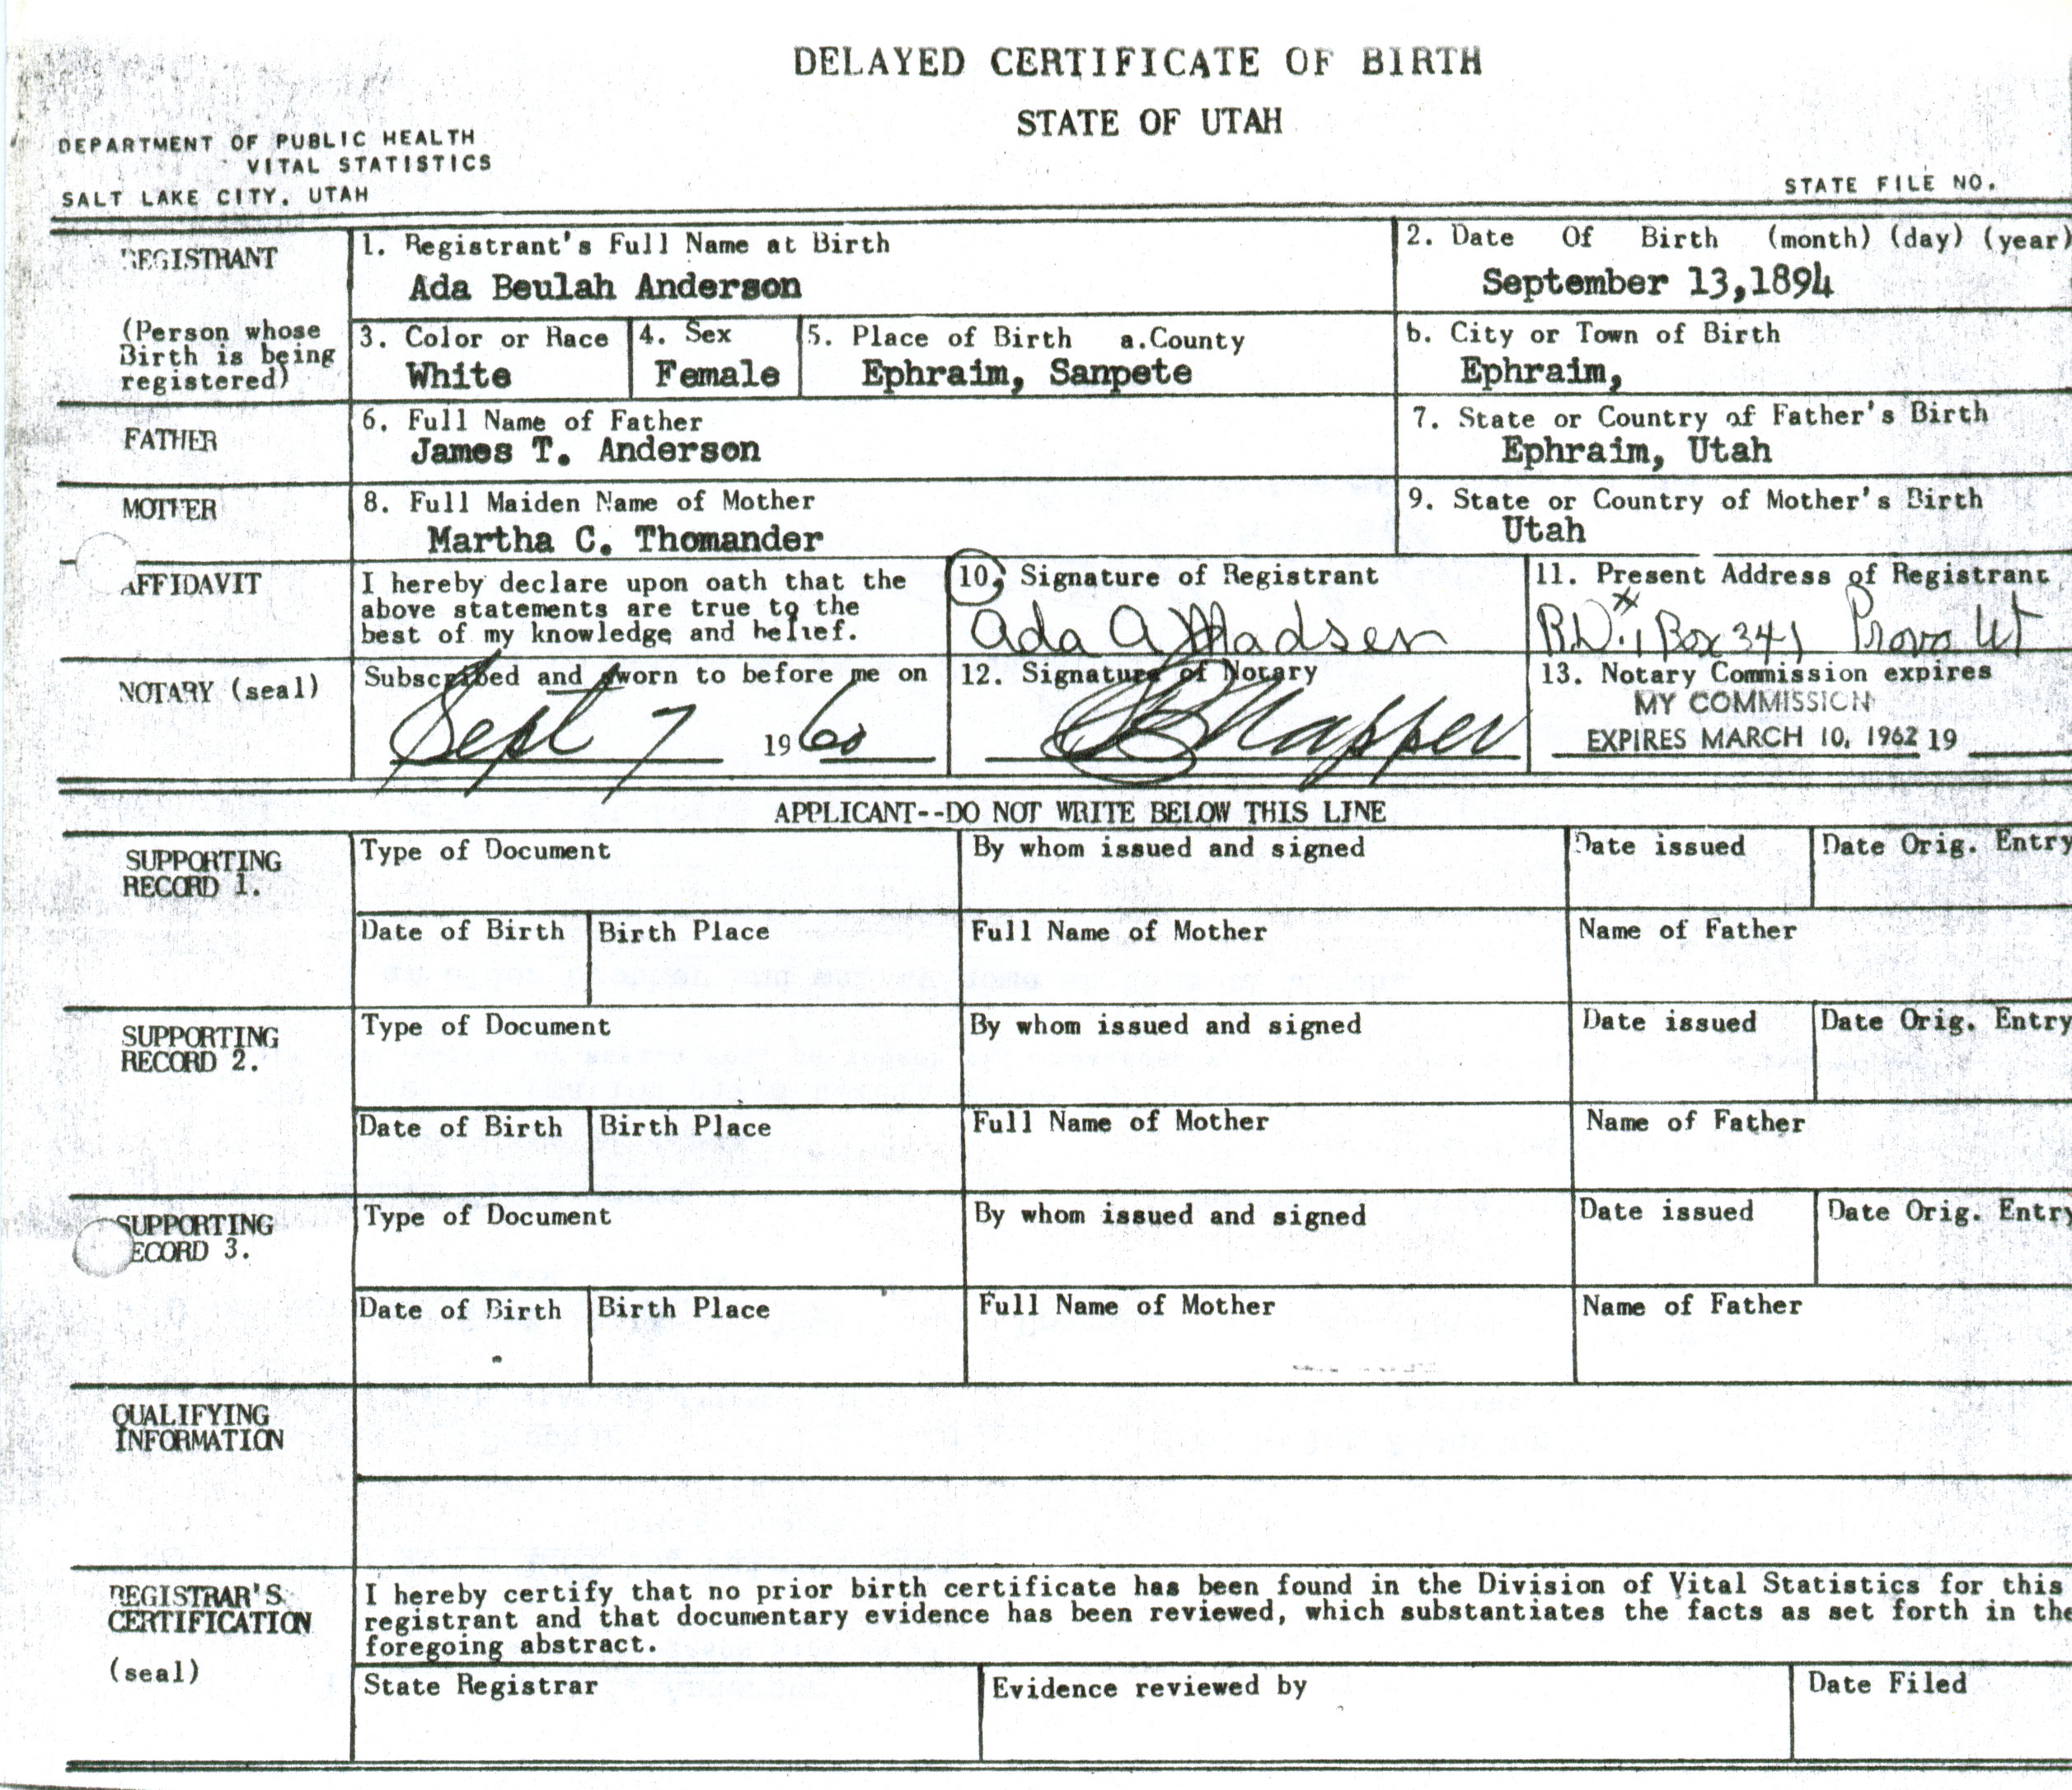 DELAYED CERTIFICATE OF BIRTH
STATE OF UTAH
DEPARTMENT OF PUBLIC HEALTH
VITAL STATISTICS
SALT LAKE CITY, UTAH
STATE FILE NO.
REGISTRANT
(Person whose
Birth is being
registered)
1. Registrant's Full Name at Birth
Ada Beulah Anderson
2. Date Of Birth (month) (day) (year)
September 13,1894
3. Color or Race
White
4. Sex
Female
5. Place of Birth a.County
Ephraim, Sanpete
b. City or Town of Birth
Ephraim,
FATHER
6. Full Name of Father
James T. Anderson
7. State or Country of Father's Birth
Ephraim, Utah
MOTHER
8. Full Maiden Name of Mother
Martha C. Thomander
9. State or Country of Mother's Birth
Utah
AFFIDAVIT
I hereby declare upon oath that the
above statements are true to the
best of my knowledge and belief.
10. Signature of Registrant
Ada A Madsen
11. Present Address of Registrant
R.D. #1 Box 341 Provo Ut
NOTARY (seal)
Subscribed and sworn to before me on
Sept 7 1960
12. Signature of Notary
13. Notary Commission expires
MY COMMISSION
EXPIRES MARCH 10, 1962 19
APPLICANT--DO NOT WRITE BELOW THIS LINE
SUPPORTING
RECORD 1.
Type of Document
By whom issued and signed
Date issued
Date Orig. Entry
Date of Birth
Birth Place
Full Name of Mother
Name of Father
SUPPORTING
RECORD 2.
Type of Document
By whom issued and signed
Date issued
Date Orig. Entry
Date of Birth
Birth Place
Full Name of Mother
Name of Father
SUPPORTING
ECORD 3.
Type of Document
By whom issued and signed
Date issued
Date Orig. Entry
Date of Birth
Birth Place
Full Name of Mother
Name of Father
QUALIFYING
INFORMATION
REGISTRAR'S
CERTIFICATION
(seal)
I hereby certify that no prior birth certificate has been found in the Division of Vital Statistics for this
registrant and that documentary evidence has been reviewed, which substantiates the facts as set forth in the
foregoing abstract.
State Registrar
Evidence reviewed by
Date Filed